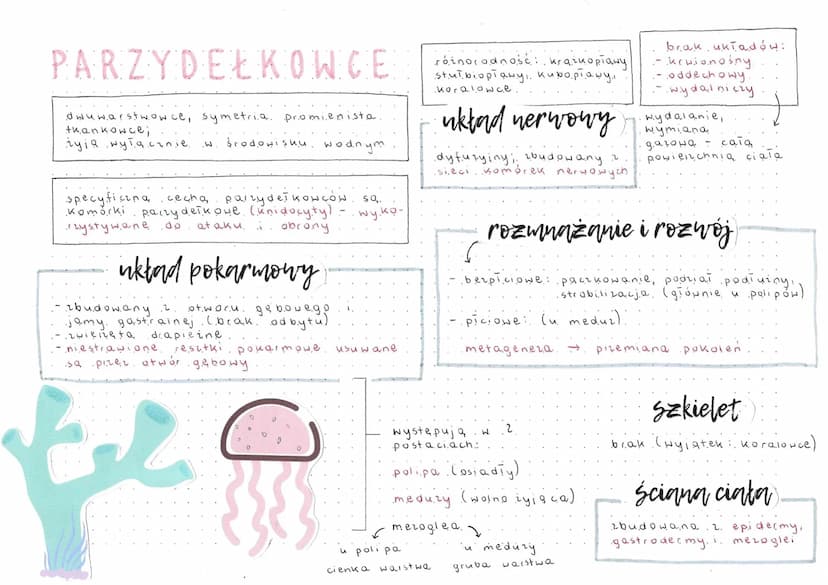 PARZYDEŁKOWCE
dwuwarstwowce, symetria promienista
tkankowce;
żyją wyłącznie w środowisku wodnym
specyficzną cechą parzydełkowców są
komórki parzydełkowe (knidocyty) - wyko-
rzystywane do ataku i obrony
układ pokarmowy
- zbudowany z otworu gębowego i
jamy gastralnej (brak odbytu)
- zwierzęta drapieżne
- niestrawione resztki pokarmowe usuwane
są przez otwór gębowy
występują w 2
postaciach:
polipa (osiadły)
meduzy (wolno żyjąca)
mezoglea
u polipa
cienka warstwa
u meduzy
gruba warstwa
różnorodność: krążkopławy
stułbiopławy, kubopławy,
koralowce
układ nerwowy
dyfuzyjny; zbudowany z
sieci komórek nerwowych
brak układów:
- krwionośny
- oddechowy
- wydalniczy
wydalanie,
wymiana
gazowa - całą
powierzchnią ciała
rozmnażanie i rozwój
- bezpłciowe: pączkowanie, podział podłużny,
strobilizacja (głównie u polipów)
- płciowe: (u meduz)
metageneza → przemiana pokoleń
szkielet
brak (wyjątek: koralowce)
ściana ciała
zbudowana z epidermy,
gastrodermy i mezoglei